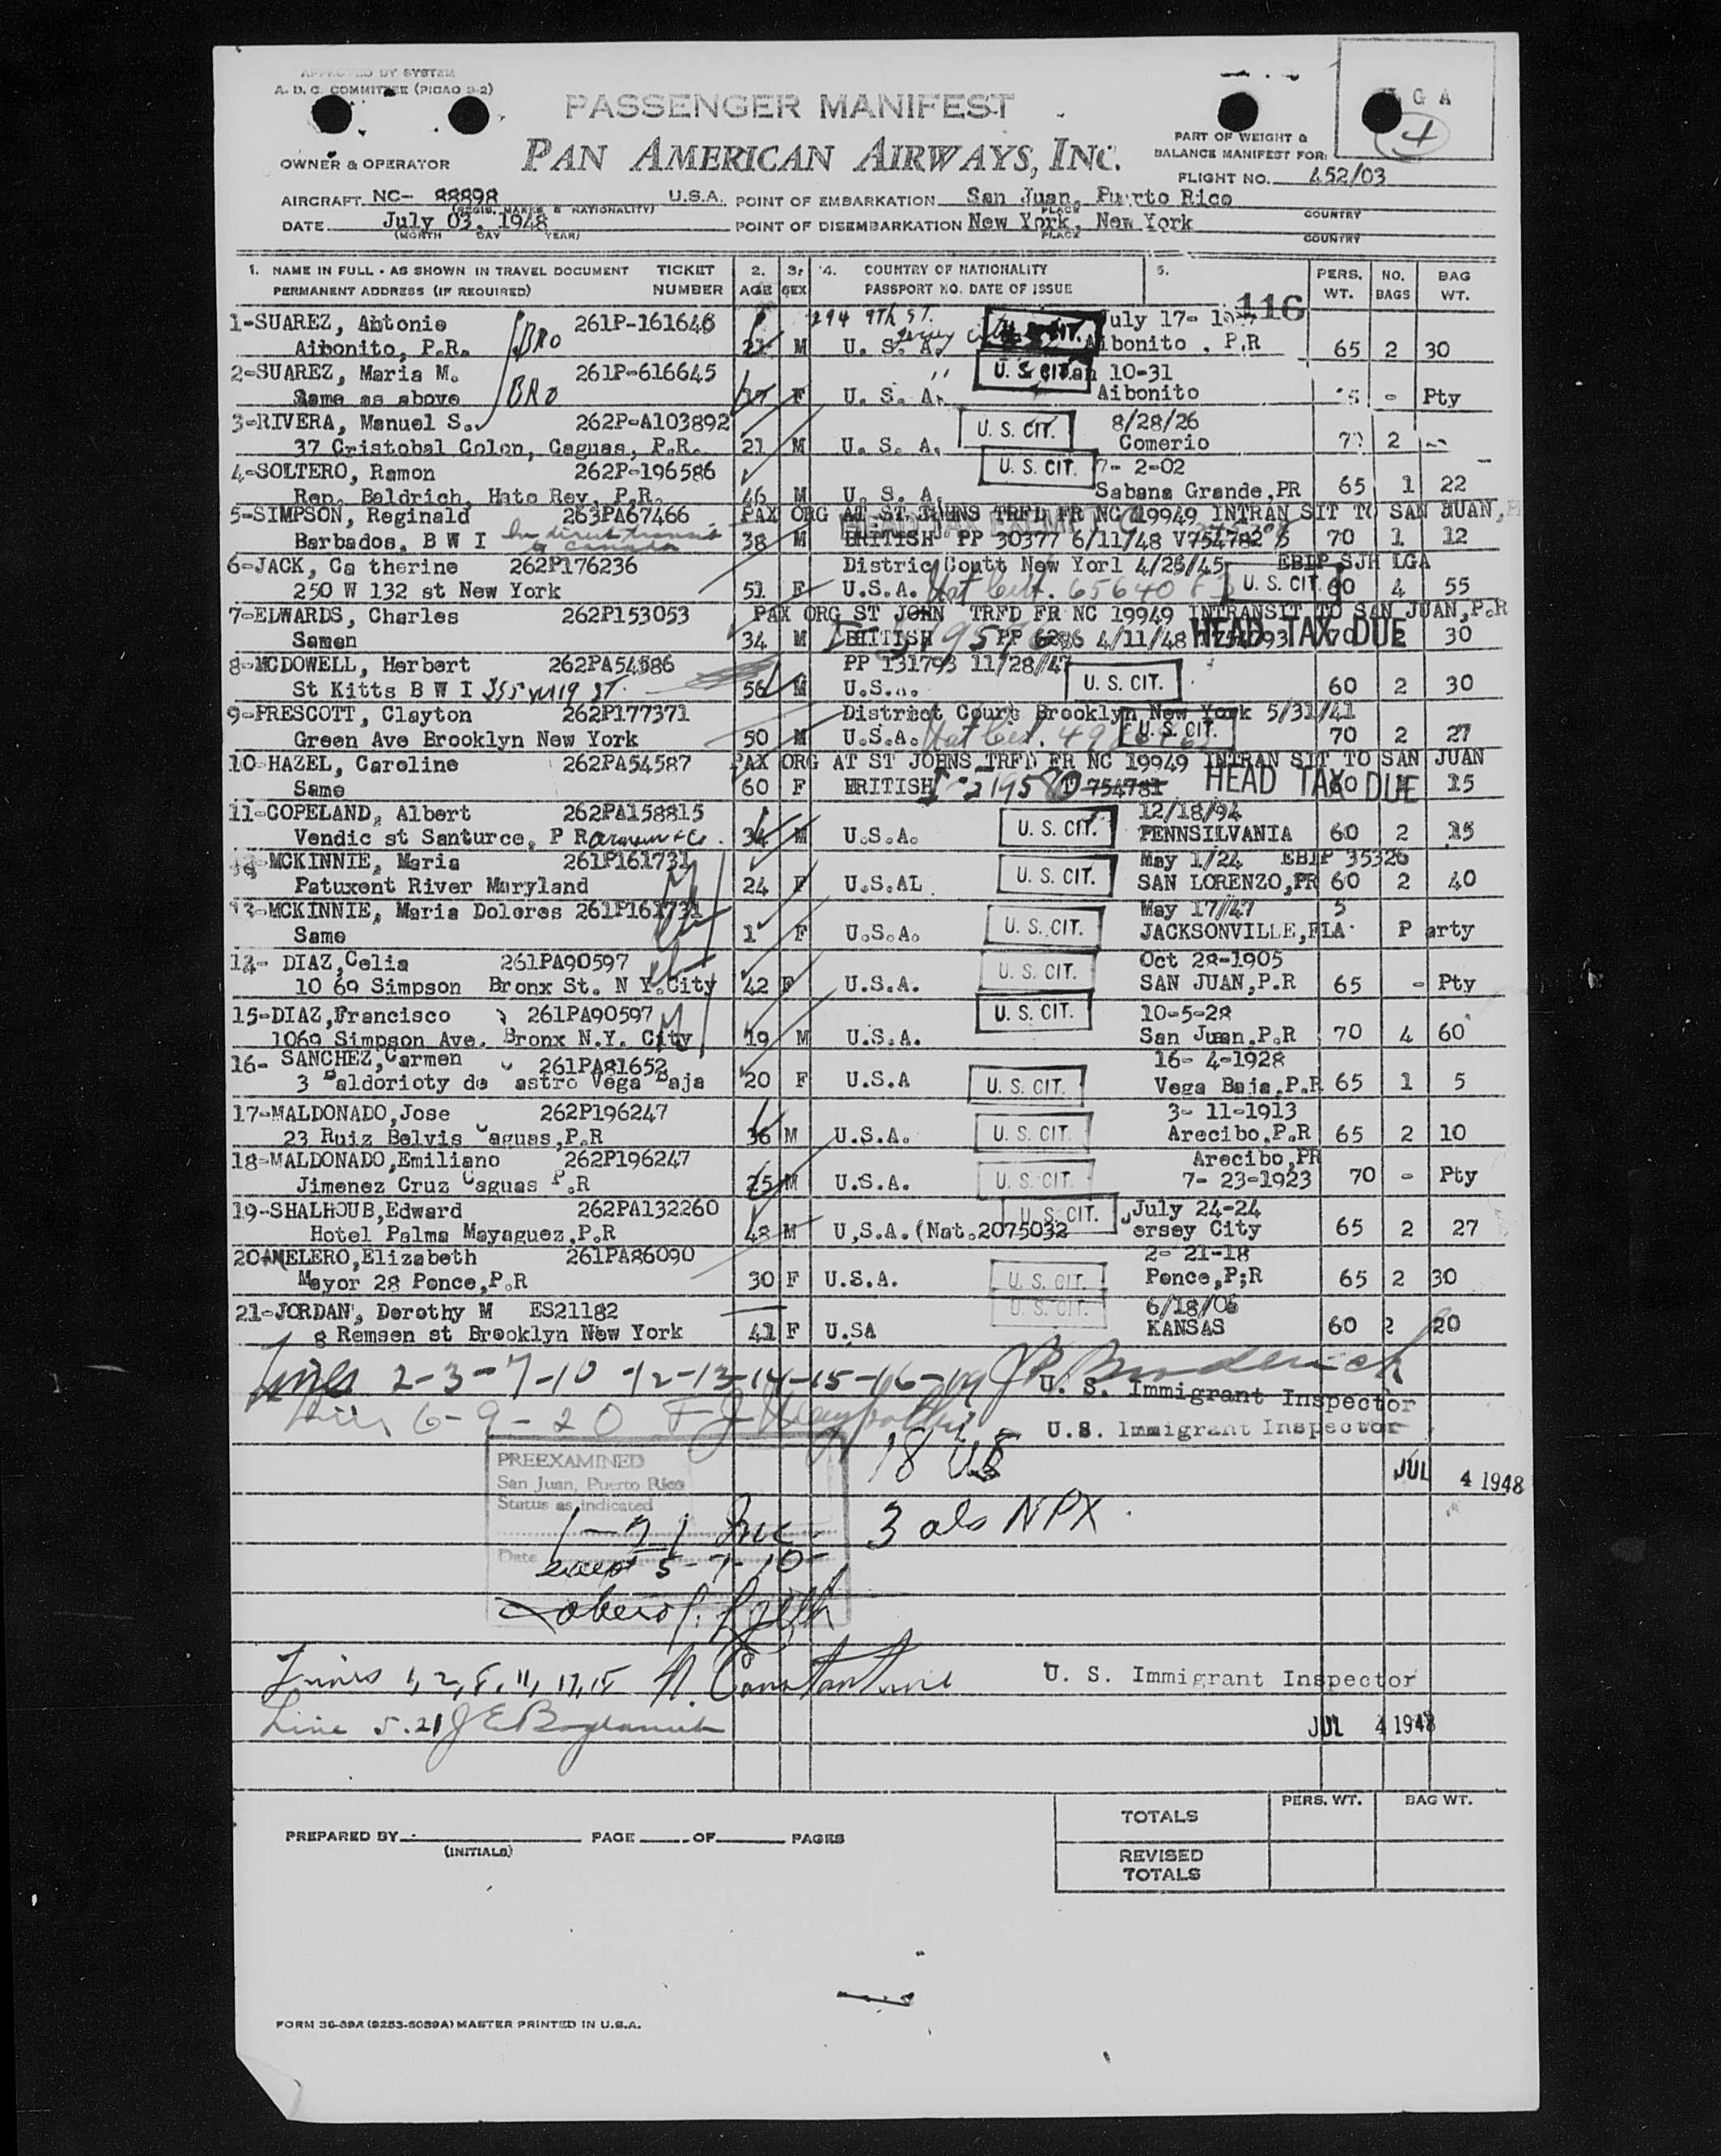 APPROVED BY SYSTEM
A. D. C. COMMITTEE (PICAO 9-2)
PASSENGER MANIFEST
G A
4
PART OF WEIGHT &
BALANCE MANIFEST FOR:
OWNER & OPERATOR
PAN AMERICAN AIRWAYS, INC.
FLIGHT NO. 452/03
AIRCRAFT. NC- 88898 U.S.A. POINT OF EMBARKATION San Juan, Puerto Rico
(REGIS. MARKS & NATIONALITY) PLACE COUNTRY
DATE July 03, 1948 POINT OF DISEMBARKATION New York, New York
(MONTH DAY YEAR) PLACE COUNTRY
1. NAME IN FULL - AS SHOWN IN TRAVEL DOCUMENT TICKET 2. 3. 4. COUNTRY OF NATIONALITY 5. PERS. NO. BAG
PERMANENT ADDRESS (IF REQUIRED) NUMBER AGE SEX PASSPORT NO. DATE OF ISSUE WT. BAGS WT.
116
1-SUAREZ, Antonio 261P-161646 294 9TH ST. July 17-
Aibonito, P.R. BRO 21 M U. S. A. U. S. CIT. Aibonito . P.R 65 2 30
2-SUAREZ, Maria M. 261P-616645 " U. S. CIT. Jan 10-31
Same as above BRO 17 F U. S. A. Aibonito - Pty
3-RIVERA, Manuel S. 262P-A103892 U. S. CIT. 8/28/26
37 Cristobal Colon, Caguas, P.R. 21 M U. S. A. Comerio 70 2 --
4-SOLTERO, Ramon 262P-196586 U. S. CIT. 7- 2-02
Rep. Baldrich, Hato Rey, P.R. 46 M U. S. A. Sabana Grande,PR 65 1 22
5-SIMPSON, Reginald 263PA67466 PAX ORG AT ST JOHNS TRFD FR NC 19949 INTRAN SIT TO SAN JUAN,
HEAD TAX EXEMPT
Barbados. B W I In direct transit to Canada 38 M BRITISH PP 30377 6/11/48 V754782 70 1 12
6-JACK, Ca therine 262P176236 Distric Coutt New Yorl 4/25/45 EBIP SJH LGA
250 W 132 st New York 51 F U.S.A. Nat Cert. U. S. CIT. 60 4 55
7-ELWARDS, Charles 262P153053 PAX ORG ST JOHN TRFD FR NC 19949 INTRANSIT TO SAN JUAN,P.R
Samen 34 M BRITISH PP 6286 4/11/48 HEAD TAX DUE 70 2 30
8-MCDOWELL, Herbert 262PA54586 PP 131793 11/28/47
St Kitts B W I 355 W 119 ST. 56 M U.S.A. U. S. CIT. 60 2 30
9-PRESCOTT, Clayton 262P177371 District Court Brooklyn New York 5/31/41
Green Ave Brooklyn New York 50 M U.S.A. Nat Cert. U. S. CIT. 70 2 27
10-HAZEL, Caroline 262PA54587 PAX ORG AT ST JOHNS TRFD FR NC 19949 INTRAN SIT TO SAN JUAN
Same 60 F BRITISH I-219580 754781 HEAD TAX DUE 60 15
11-COPELAND, Albert 262PA158815 U. S. CIT. 12/18/94
Vendic st Santurce, P R 34 M U.S.A. PENNSILVANIA 60 2 15
12-MCKINNIE, Maria 261P161731 U. S. CIT. May 1/24 EBIP 35326
Patuxent River Maryland 24 F U.S.AL SAN LORENZO,PR 60 2 40
13-MCKINNIE, Maria Dolores 261P161731 U. S. CIT. May 17/47 5
Same 1 F U.S.A. JACKSONVILLE,FLA P arty
14- DIAZ,Celia 261PA90597 U. S. CIT. Oct 28-1905
10 69 Simpson Bronx St. N Y.City 42 F U.S.A. SAN JUAN,P.R 65 - Pty
15-DIAZ,Francisco 261PA90597 U. S. CIT. 10-5-28
1069 Simpson Ave. Bronx N.Y. City 19 M U.S.A. San Juan.P.R 70 4 60
16- SANCHEZ,Carmen 261PA81652 16- 4-1928
3 Baldorioty de astro Vega Baja 20 F U.S.A U. S. CIT. Vega Baja.P.R 65 1 5
17-MALDONADO,Jose 262P196247 3- 11-1913
23 Ruiz Belvis Caguas,P.R 36 M U.S.A. U. S. CIT. Arecibo.P.R 65 2 10
18-MALDONADO,Emiliano 262P196247 Arecibo,PR
Jimenez Cruz Caguas P.R 25 M U.S.A. U. S. CIT. 7- 23-1923 70 - Pty
19-SHALHOUB,Edward 262PA132260 U. S. CIT. July 24-24
Hotel Palma Mayaguez,P.R 48 M U,S.A.(Nat.2075032 Jersey City 65 2 27
20-MELERO,Elizabeth 261PA86090 2- 21-18
Mayor 28 Ponce,P.R 30 F U.S.A. U. S. CIT. Ponce,P;R 65 2 30
21-JORDAN, Dorothy M ES21182 U. S. CIT. 6/18/06
8 Remsen st Brooklyn New York 41 F U.SA KANSAS 60 2 20
Lines 2-3-7-10-12-13-14-15-16-19 J P Broderick
U. S. Immigrant Inspector
Lines 6-9-20
U.S. Immigrant Inspector
18 US
JUL 4 1948
PREEXAMINED
San Juan, Puerto Rico
Status as indicated
1-21 Inc
3 als NPX.
Date
except 5-7-10-
Lines 1, 2, 8, 11, 17, 18 N. Constantine U. S. Immigrant Inspector
Line 5.21
JUL 4 1948
PERS. WT. BAG WT.
TOTALS
PREPARED BY PAGE OF PAGES
(INITIALS)
REVISED
TOTALS
FORM 36-89A (9253-5089A) MASTER PRINTED IN U.S.A.